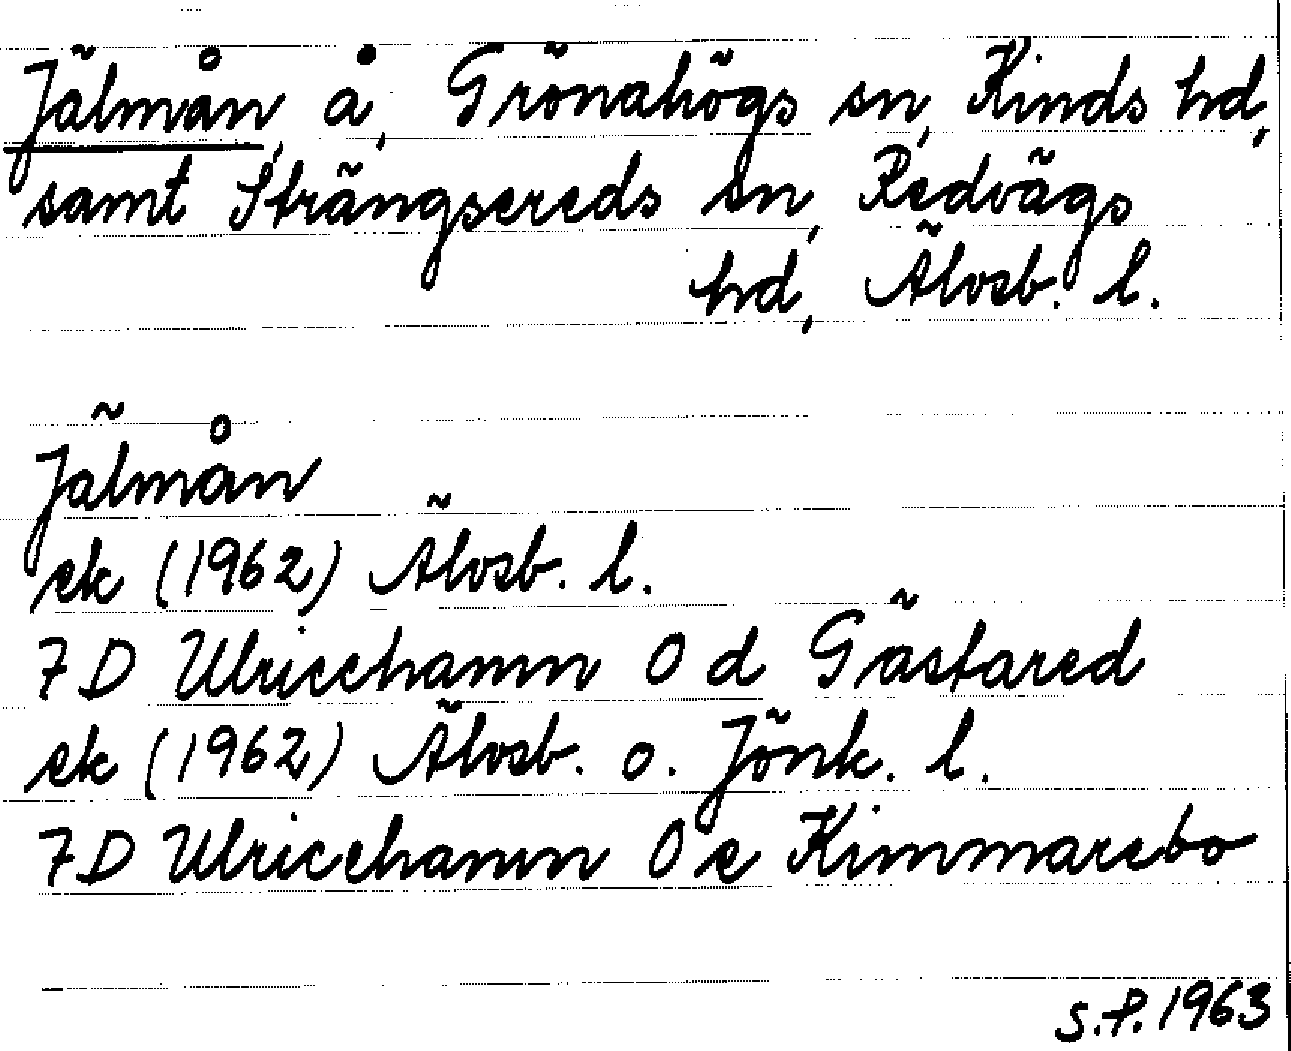 Jälmån, å, Grönahögs sn, Kinds hd,
samt Strängsereds sn, Redvägs
hd, Älvsb. l.
Jälmån
ek (1962) Älvsb. l.
7 D Ulricehamn 0 d Gästared
ek (1962) Älvsb. o. Jönk. l.
7 D Ulricehamn 0 e Kimmarebo
S.P. 1963